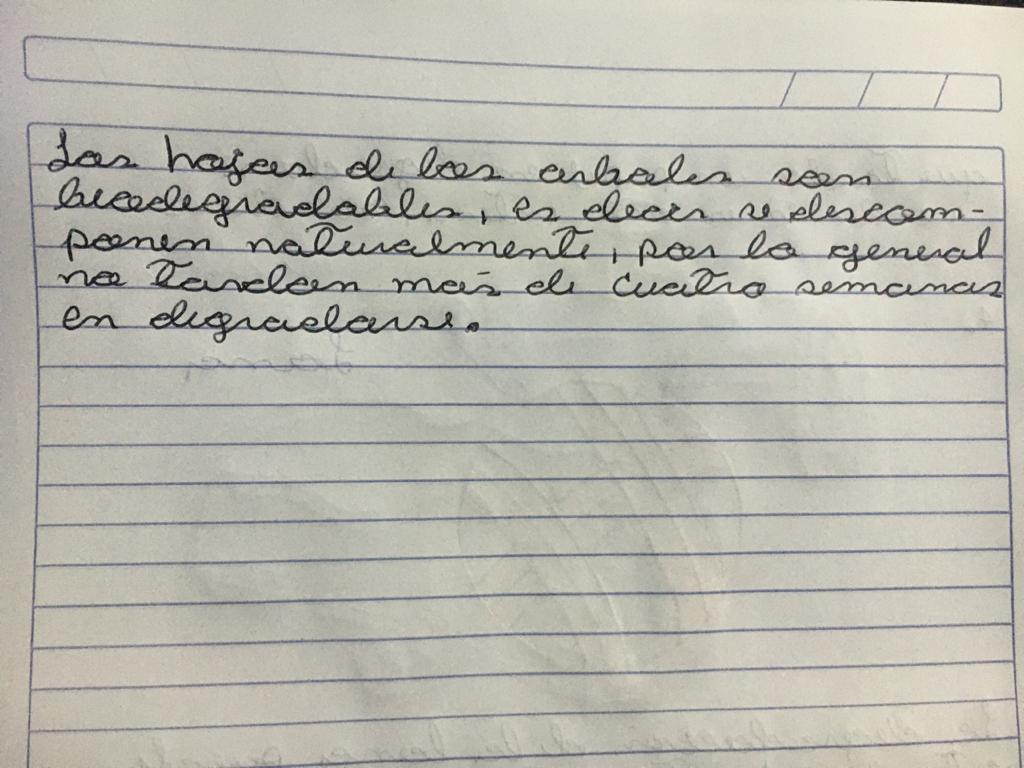 Las hojas de los arboles son
biodegradables, es decir se descom-
ponen naturalmente, por lo general
no tardan más de cuatro semanas
en degradarse.